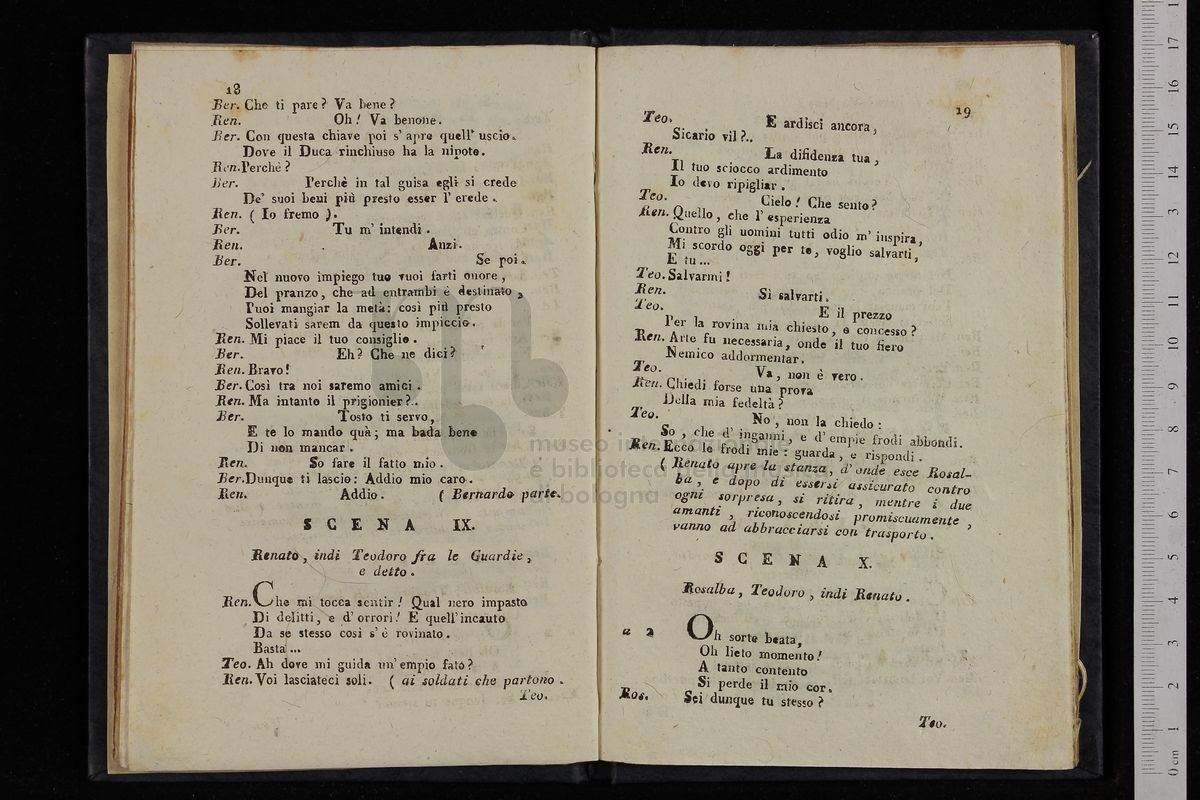 18
Ber. Che ti pare? Va bene?
Ren. Oh! Va benone.
Ber. Con questa chiave poi s' apre quell' uscio.
Dove il Duca rinchiuso ha la nipote.
Ren. Perchè?
Ber. Perchè in tal guisa egli si crede
De' suoi beni più presto esser l' erede.
Ren. ( Io fremo ).
Ber. Tu m' intendi.
Ren. Anzi.
Ber. Se poi.
Nel nuovo impiego tuo vuoi farti onore,
Del pranzo, che ad entrambi è destinato,
Puoi mangiar la metà: così più presto
Sollevati sarem da questo impiccio.
Ren. Mi piace il tuo consiglio.
Ber. Eh? Che ne dici?
Ren. Bravo!
Ber. Così tra noi saremo amici.
Ren. Ma intanto il prigionier?..
Ber. Tosto ti servo,
E te lo mando quà; ma bada bene
Di non mancar.
Ren. So fare il fatto mio.
Ber. Dunque ti lascio: Addio mio caro.
Ren. Addio. ( Bernardo parte.
SCENA IX.
Renato, indi Teodoro fra le Guardie,
e detto.
Ren. Che mi tocca sentir! Qual nero impasto
Di delitti, e d' orrori! E quell' incauto
Da se stesso così s' è rovinato.
Basta ...
Teo. Ah dove mi guida un' empio fato?
Ren. Voi lasciateci soli. ( ai soldati che partono.
Teo.
19
Teo. E ardisci ancora,
Sicario vil?..
Ren. La difidenza tua,
Il tuo sciocco ardimento
Io devo ripigliar.
Teo. Cielo! Che sento?
Ren. Quello, che l' esperienza
Contro gli uomini tutti odio m' inspira,
Mi scordo oggi per te, voglio salvarti,
E tu ...
Teo. Salvarmi!
Ren. Sì salvarti.
Teo. E il prezzo
Per la rovina mia chiesto, e concesso?
Ren. Arte fu necessaria, onde il tuo fiero
Nemico addormentar.
Teo. Va, non è vero.
Ren. Chiedi forse una prova
Della mia fedeltà?
Teo. No, non la chiedo:
So, che d' inganni, e d' empie frodi abbondi.
Ren. Ecco le frodi mie: guarda, e rispondi.
( Renato apre la stanza, d' onde esce Rosal-
ba, e dopo di essersi assicurato contro
ogni sorpresa, si ritira, mentre i due
amanti, riconoscendosi promiscuamente,
vanno ad abbracciarsi con trasporto.
SCENA X.
Rosalba, Teodoro, indi Renato.
a 2 Oh sorte beata,
Oh lieto momento!
A tanto contento
Si perde il mio cor.
Ros. Sei dunque tu stesso?
Teo.
museo internazionale
e biblioteca della musica
di bologna
0 cm 1 2 3 4 5 6 7 8 9 10 11 12 13 14 15 16 17